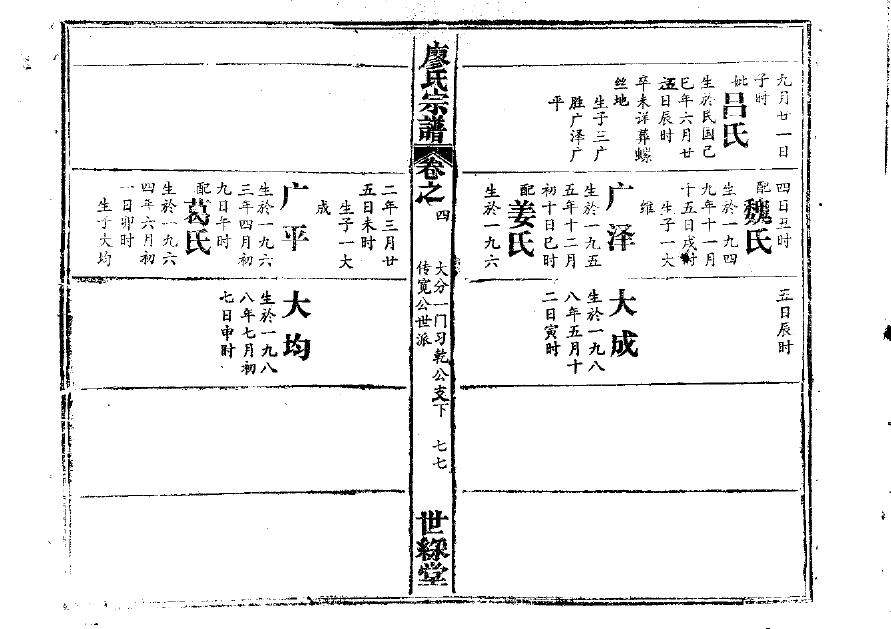 九月廿一日
子时
妣吕氏
生於民国己
巳年六月廿
五日辰时
卒未详葬螺
丝地
生子三广
胜广泽广
平
四日丑时
配魏氏
生於一九四
九年十一月
十五日戌时
生子一大
维
广泽
生於一九五
五年十二月
初十日巳时
配姜氏
生於一九六
五日辰时
大成
生於一九八
八年五月十
二日寅时
廖氏宗谱
卷之四
大分一门习乾公支下
传宽公世派
七七
世綵堂
二年三月廿
五日未时
生子一大
成
广平
生於一九六
三年四月初
九日午时
配葛氏
生於一九六
四年六月初
一日卯时
生子大均
大均
生於一九八
八年七月初
七日申时